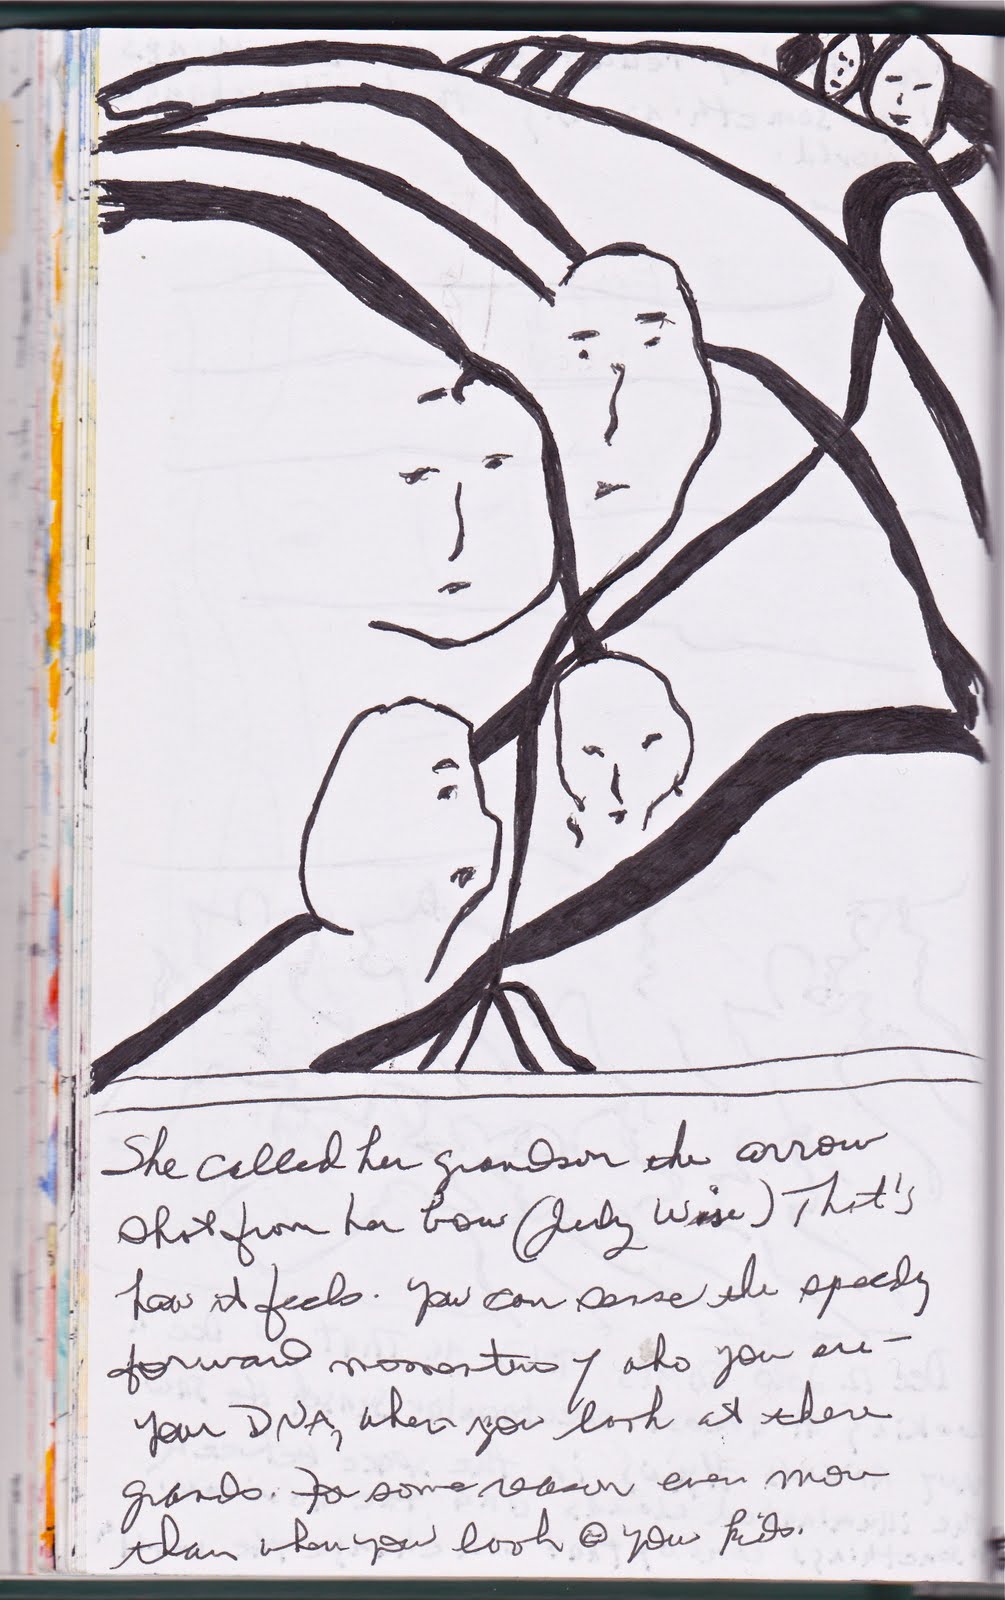 She called her grandson the arrow
shot from her bow (Judy Wise) That's
how it feels. You can sense the speedy
forward momentum of who you are -
your DNA, when you look at these
grands. For some reason even more
than when you look @ you kids.